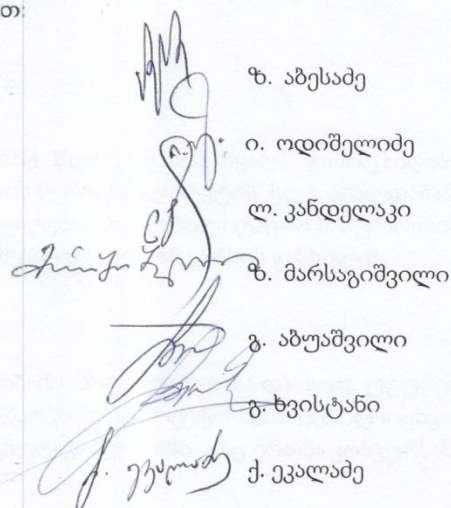 თ:
ზ. აბესაძე
ი. ოდიშელიძე
ლ. კანდელაკი
ზ. მარსაგიშვილი
გ. აბუაშვილი
გ. ხვისტანი
ქ. ეკალაძე